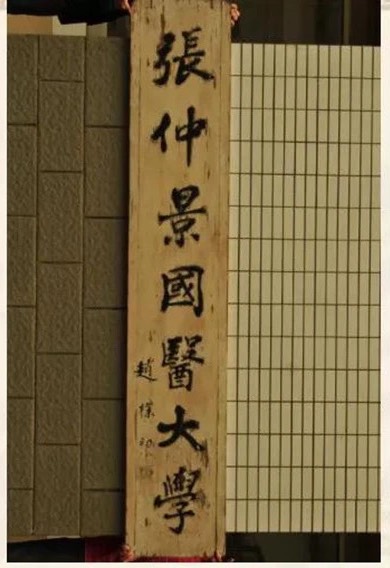 張仲景國醫大學
趙樸初